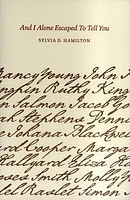 And I Alone Escaped To Tell You
SYLVIA D. HAMILTON
rancy Young John
Ruthy King
n Salmon Jacob
as Stephens Denni
e Johana Blac
ard Cooper Marga
Hallyard Eliza H
oses Smith Molly
el Raslet Simeon